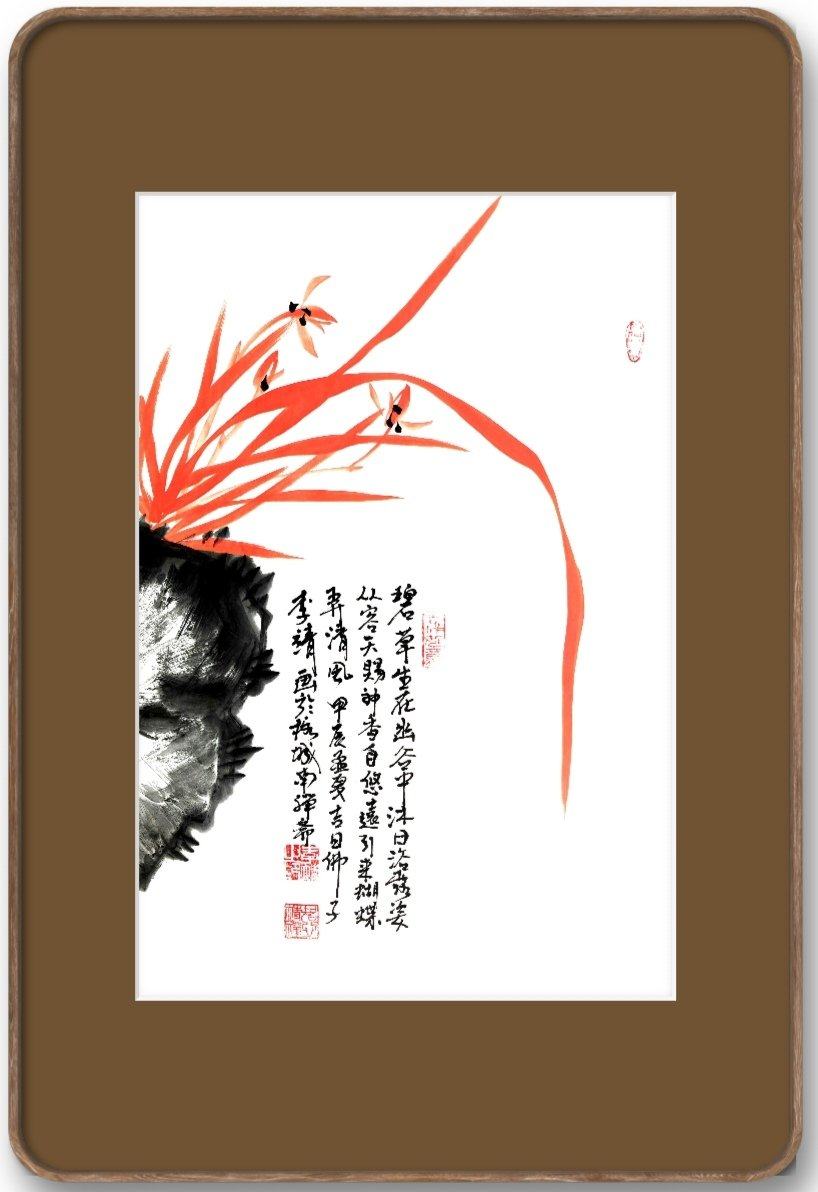 碧草生在幽谷中沐日浴露姿
从容天赐神香自悠远引来蝴蝶
弄清风 甲辰孟夏吉日佛子
李靖画于榕城南禅斋